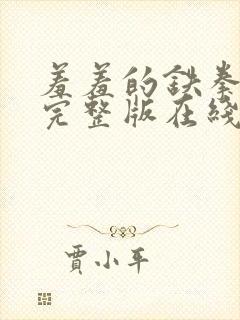 羞羞的铁拳
完整版在线
贾小平